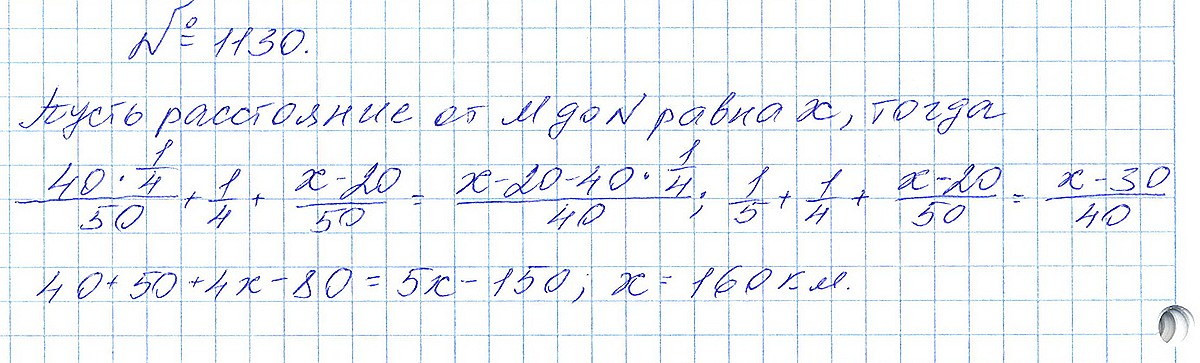 № 1130.
Пусть расстояние от M до N равна x, тогда
(40 · 1/4)/50 + 1/4 + (x-20)/50 = (x-20-40 · 1/4)/40; 1/5 + 1/4 + (x-20)/50 = (x-30)/40
40+50+4x-80=5x-150; x=160 км.